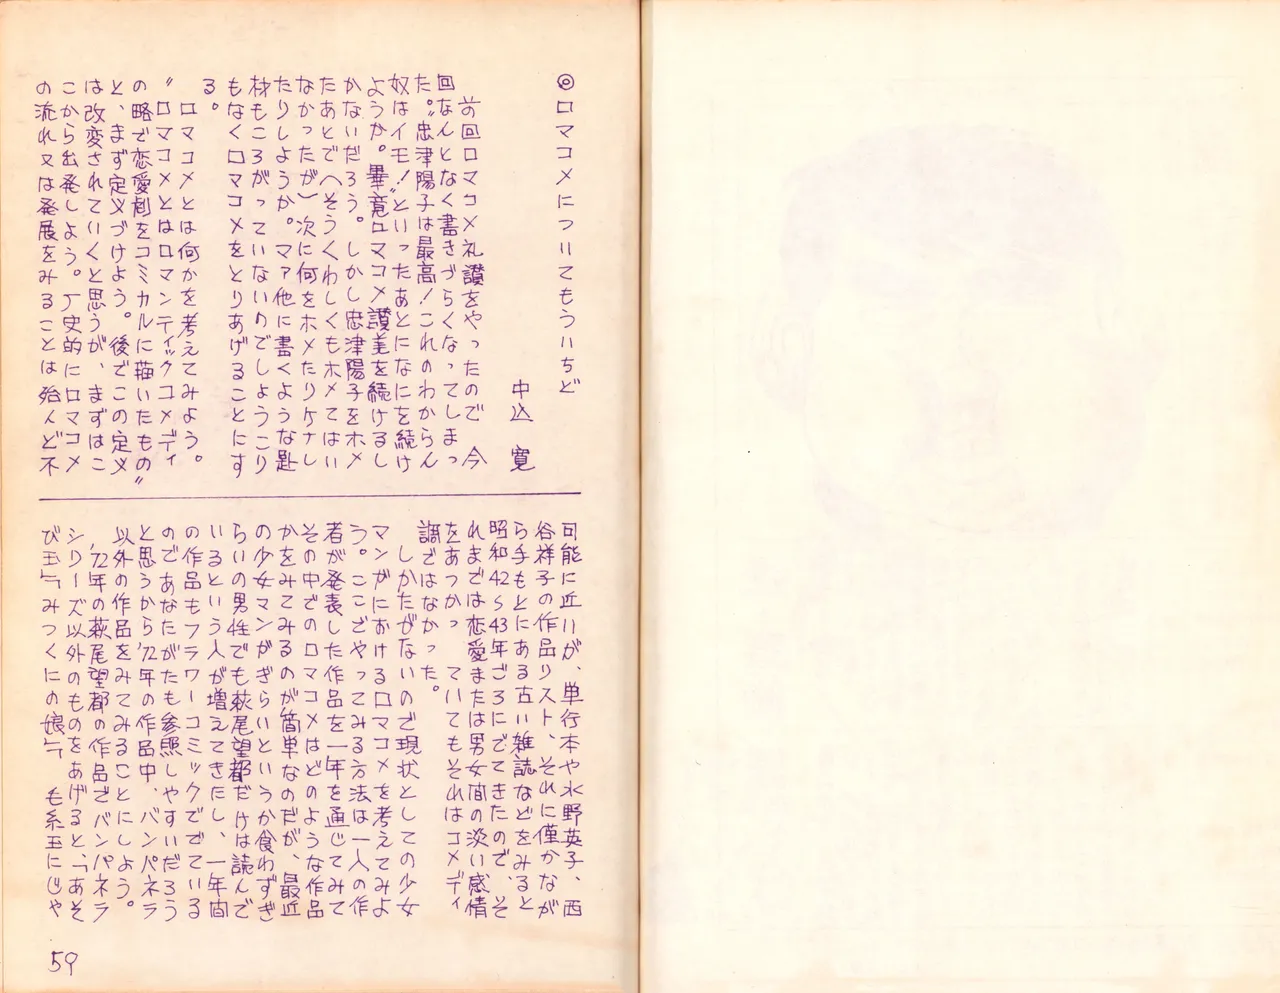 ◎ロマコメについてもういちど
中込　寛
前回ロマコメ礼讃をやったので　今
回なんとなく書きづらくなってしまっ
た。〝忠津陽子は最高！これのわからん
奴はイモ！〟といったあとになにを続け
ようか。畢竟ロマコメ讃美を続けるし
かないだろう。しかし忠津陽子をホメ
たあとで（そうくわしくもホメてはい
なかったが）次に何をホメたりケナし
たりしようか。マァ他に書くような題
材もころがっていないのでしょうこり
もなくロマコメをとりあげることにす
る。
ロマコメとは何かを考えてみよう。
〝ロマコメとはロマンティックコメディ
の略で恋愛劇をコミカルに描いたもの〟
と、まず定義づけよう。後でこの定義
は改変されていくと思うが、まずはこ
こから出発しよう。歴史的にロマコメ
の流れ又は発展をみることは殆んど不
可能に近いが、単行本や水野英子、西
谷祥子の作品リスト、それに僅かなが
ら手もとにある古い雑誌などをみると
昭和42～43年ごろにでてきたので、そ
れまでは恋愛または男女間の淡い感情
をあつかっ　ていてもそれはコメディ
調ではなかった。
しかたがないので現状としての少女
マンガにおけるロマコメを考えてみよ
う。ここでやってみる方法は一人の作
者が発表した作品を一年を通じてみて
その中でのロマコメはどのような作品
かをみてみるのが簡単なのだが、最近
の少女マンガぎらいというか食わずぎ
らいの男性でも萩尾望都だけは読んで
いるという人が増えてきたし、一年間
の作品もフラワーコミックででている
のであなたがたも参照しやすいだろう
と思うから'72年の作品中、バンパネラ
以外の作品をみてみることにしよう。
'72年の萩尾望都の作品でバンパネラ
シリーズ以外のものをあげると、「あそ
び玉」「みつくにの娘」「毛糸玉にじゃ
59